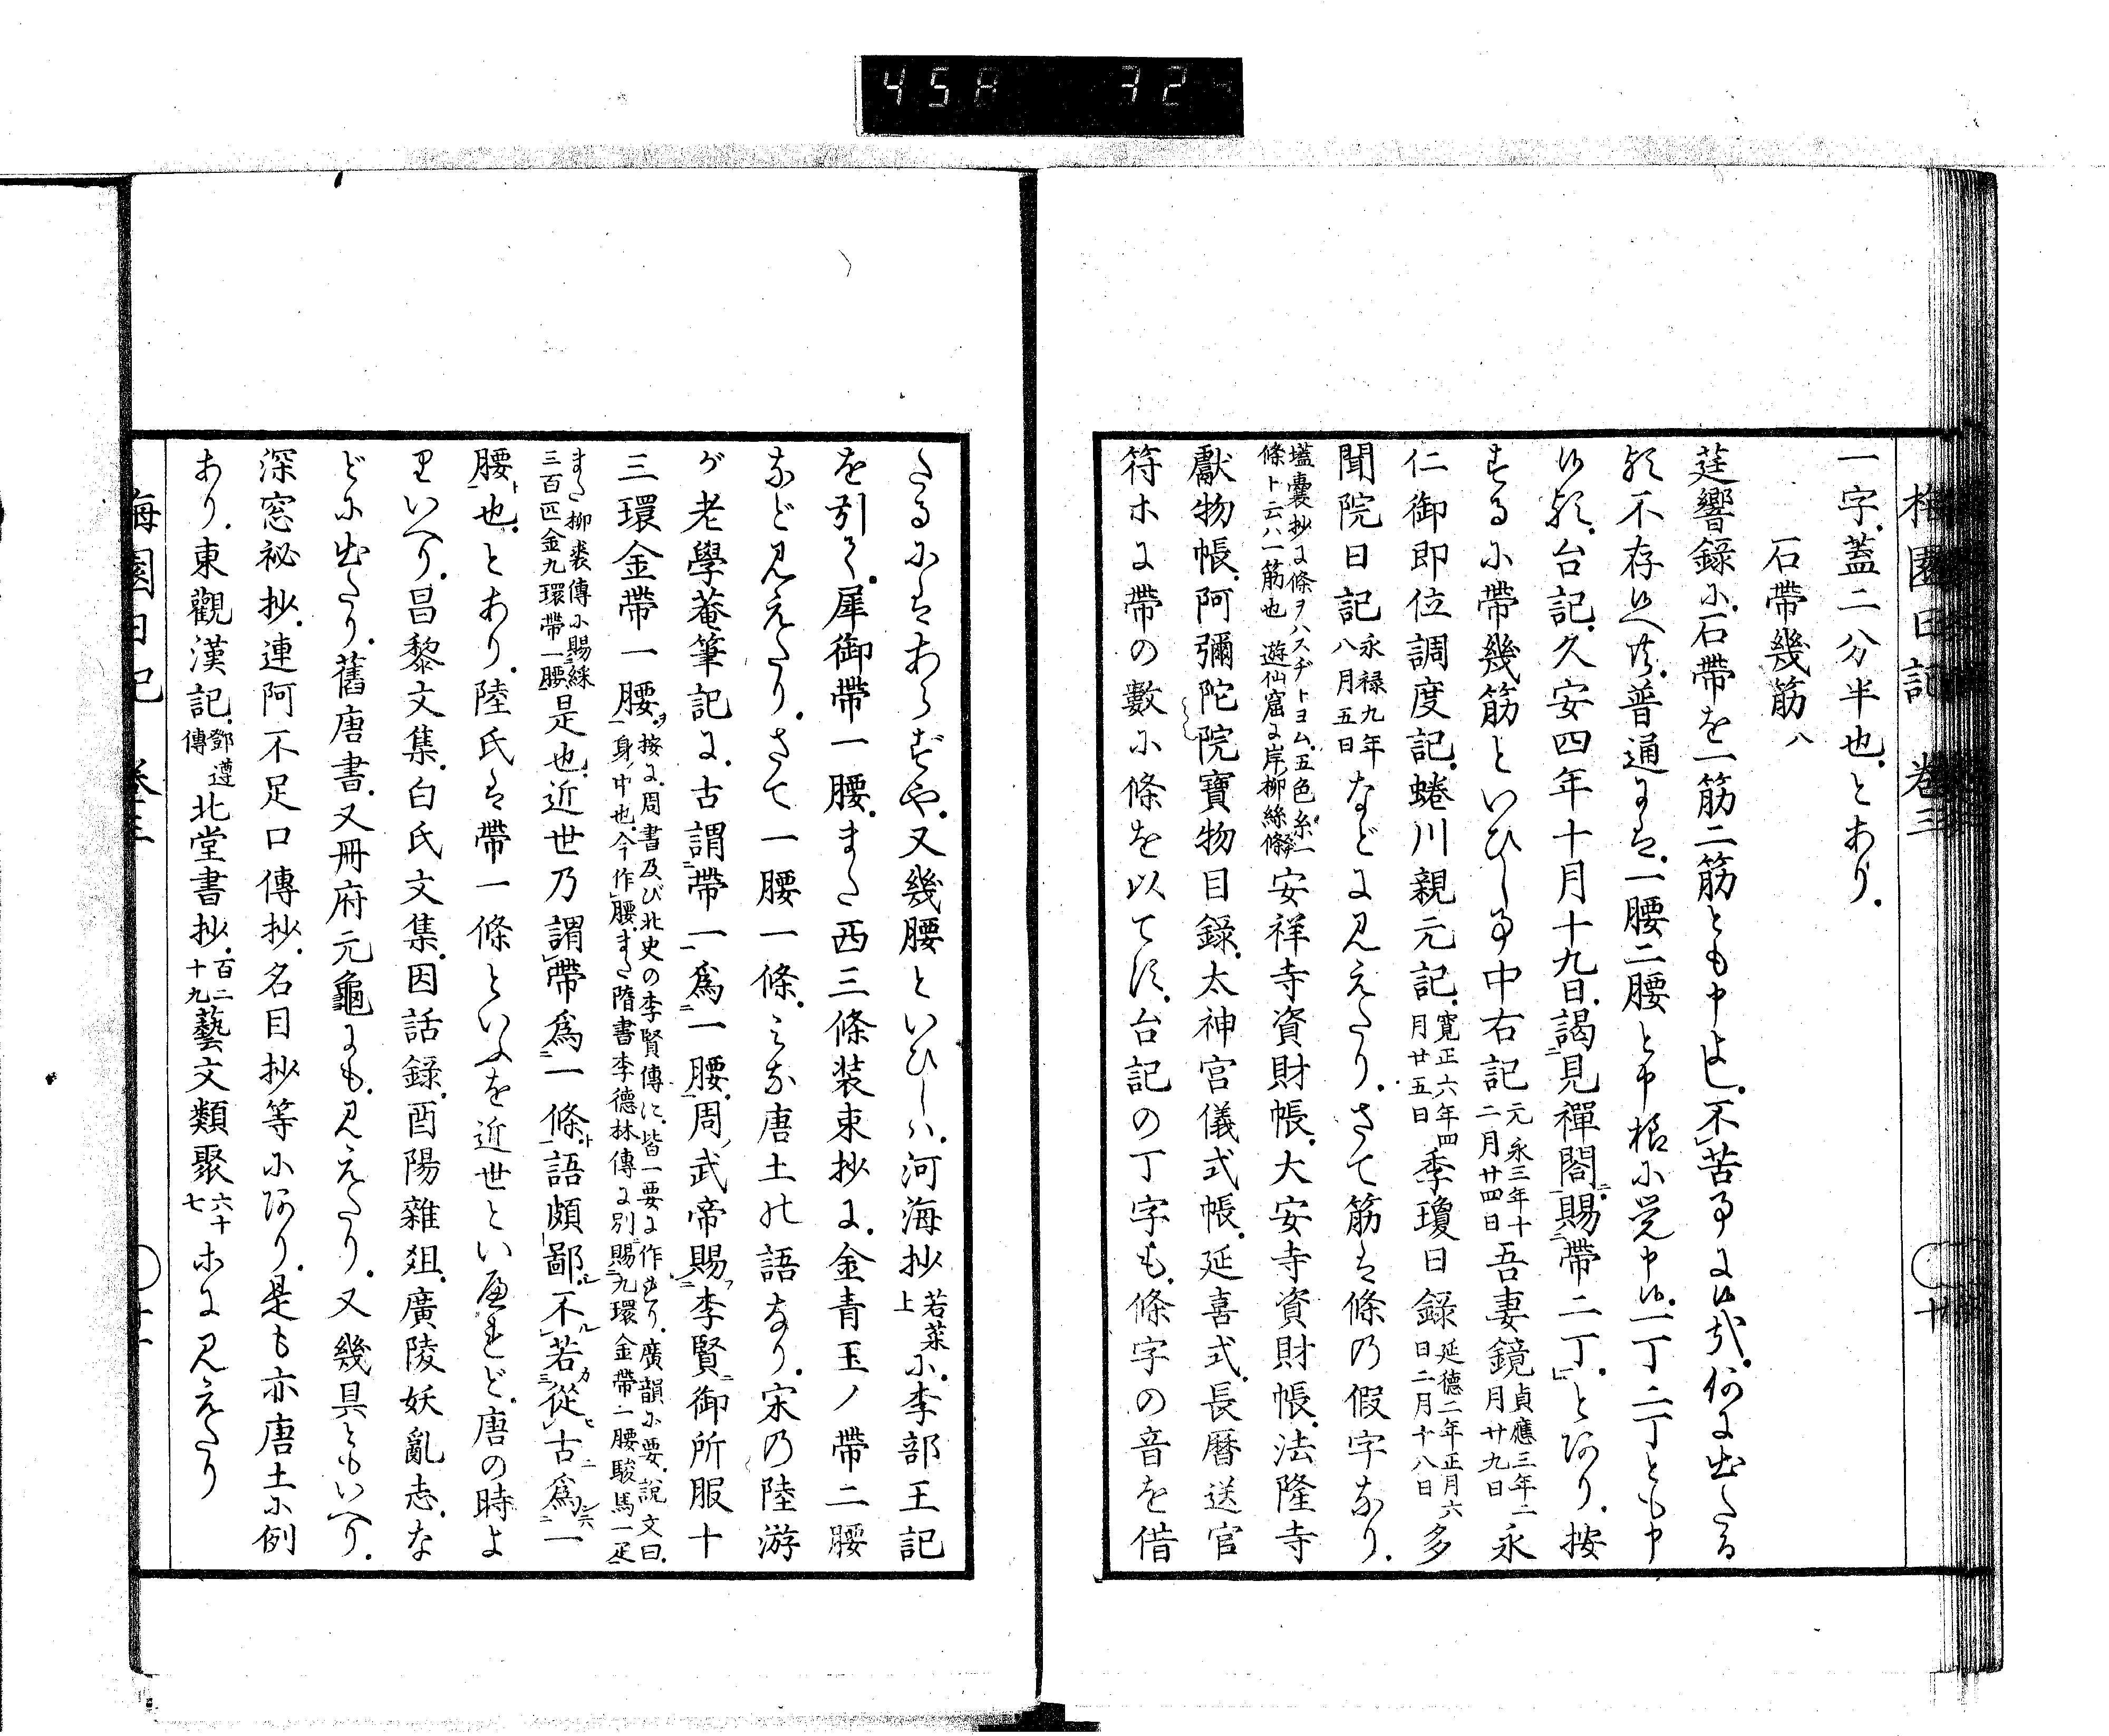 458 32
梅園日記 卷三 十
一字蓋二分半也とあり
石帶幾筋 八
莛響錄に石帶を一筋二筋とも申よし不苦事に候哉何に出たる
歟不存候へ共普通には一腰二腰と申樣に覺申候一丁二丁とも申
候歟台記久安四年十月十九日謁見禪閤賜帶二丁とあり按
ずるに帶幾筋といひし事中右記元永三年十二月廿四日吾妻鏡貞應三年二月廿九日永
仁御即位調度記蜷川親元記寛正六年四月廿五日季瓊日錄延德二年正月六日二月十八日多
聞院日記永禄九年八月五日などに見えたりさて筋は條の假字なり
壒囊抄に條ヲハスヂトヨム五色糸一條ト云ハ一筋也遊仙窟に岸柳絲條安祥寺資財帳大安寺資財帳法隆寺
獻物帳阿彌陀院寶物目錄太神宮儀式帳延喜式長曆送官
符ホに帶の數に條を以てす台記の丁字も條字の音を借
たるにはあらずや又幾腰といひしハ河海抄若菜上に李部王記
を引て犀御帶一腰また西三條装束抄に金青玉ノ帶二腰
など見えたりさて一腰一條みな唐土の語なり宋の陸游
が老學菴筆記に古謂帶一爲一腰周武帝賜李賢御所服十
三環金帶一腰按に周書及び北史の李賢傳に皆一要に作れり廣韻に要說文曰身中也今作腰また隋書李德林傳に別賜九環金帶一腰駿馬一疋
また柳裘傳に賜綵三百匹金九環帶一腰是也近世乃謂帶爲一條語頗鄙不若從古爲一
腰也とあり陸氏は帶一條といふを近世といへれど唐の時よ
りいへり昌黎文集白氏文集因話錄酉陽雜俎廣陵妖亂志な
どに出たり舊唐書又冊府元龜にも見えたり又幾具ともいへり
深窓祕抄連阿不足口傳抄名目抄等にあり是も亦唐土に例
あり東觀漢記鄧遵傳北堂書抄百二十九藝文類聚六十七ホに見えたり
梅園日記 卷三